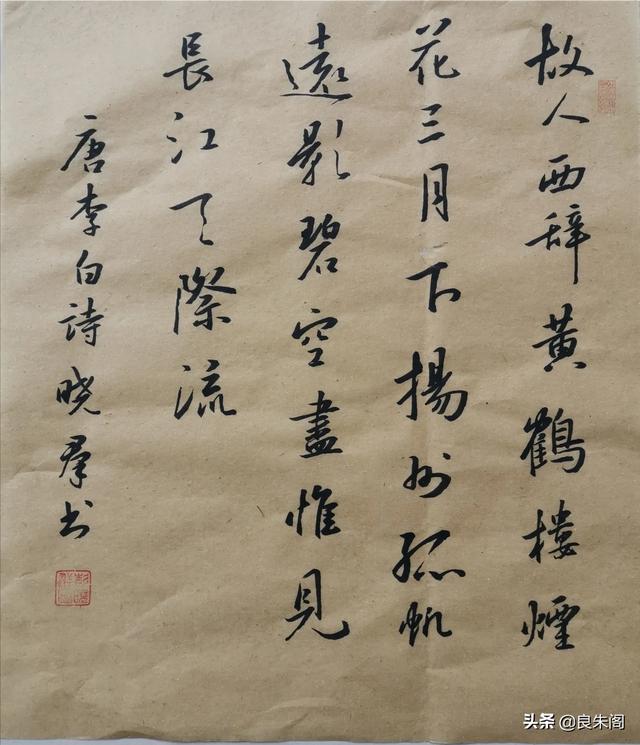 故人西辞黄鶴樓煙
花三月下揚州孤帆
遠影碧空盡惟見
長江天際流
唐李白詩晓羣书
头条 @良朱阁